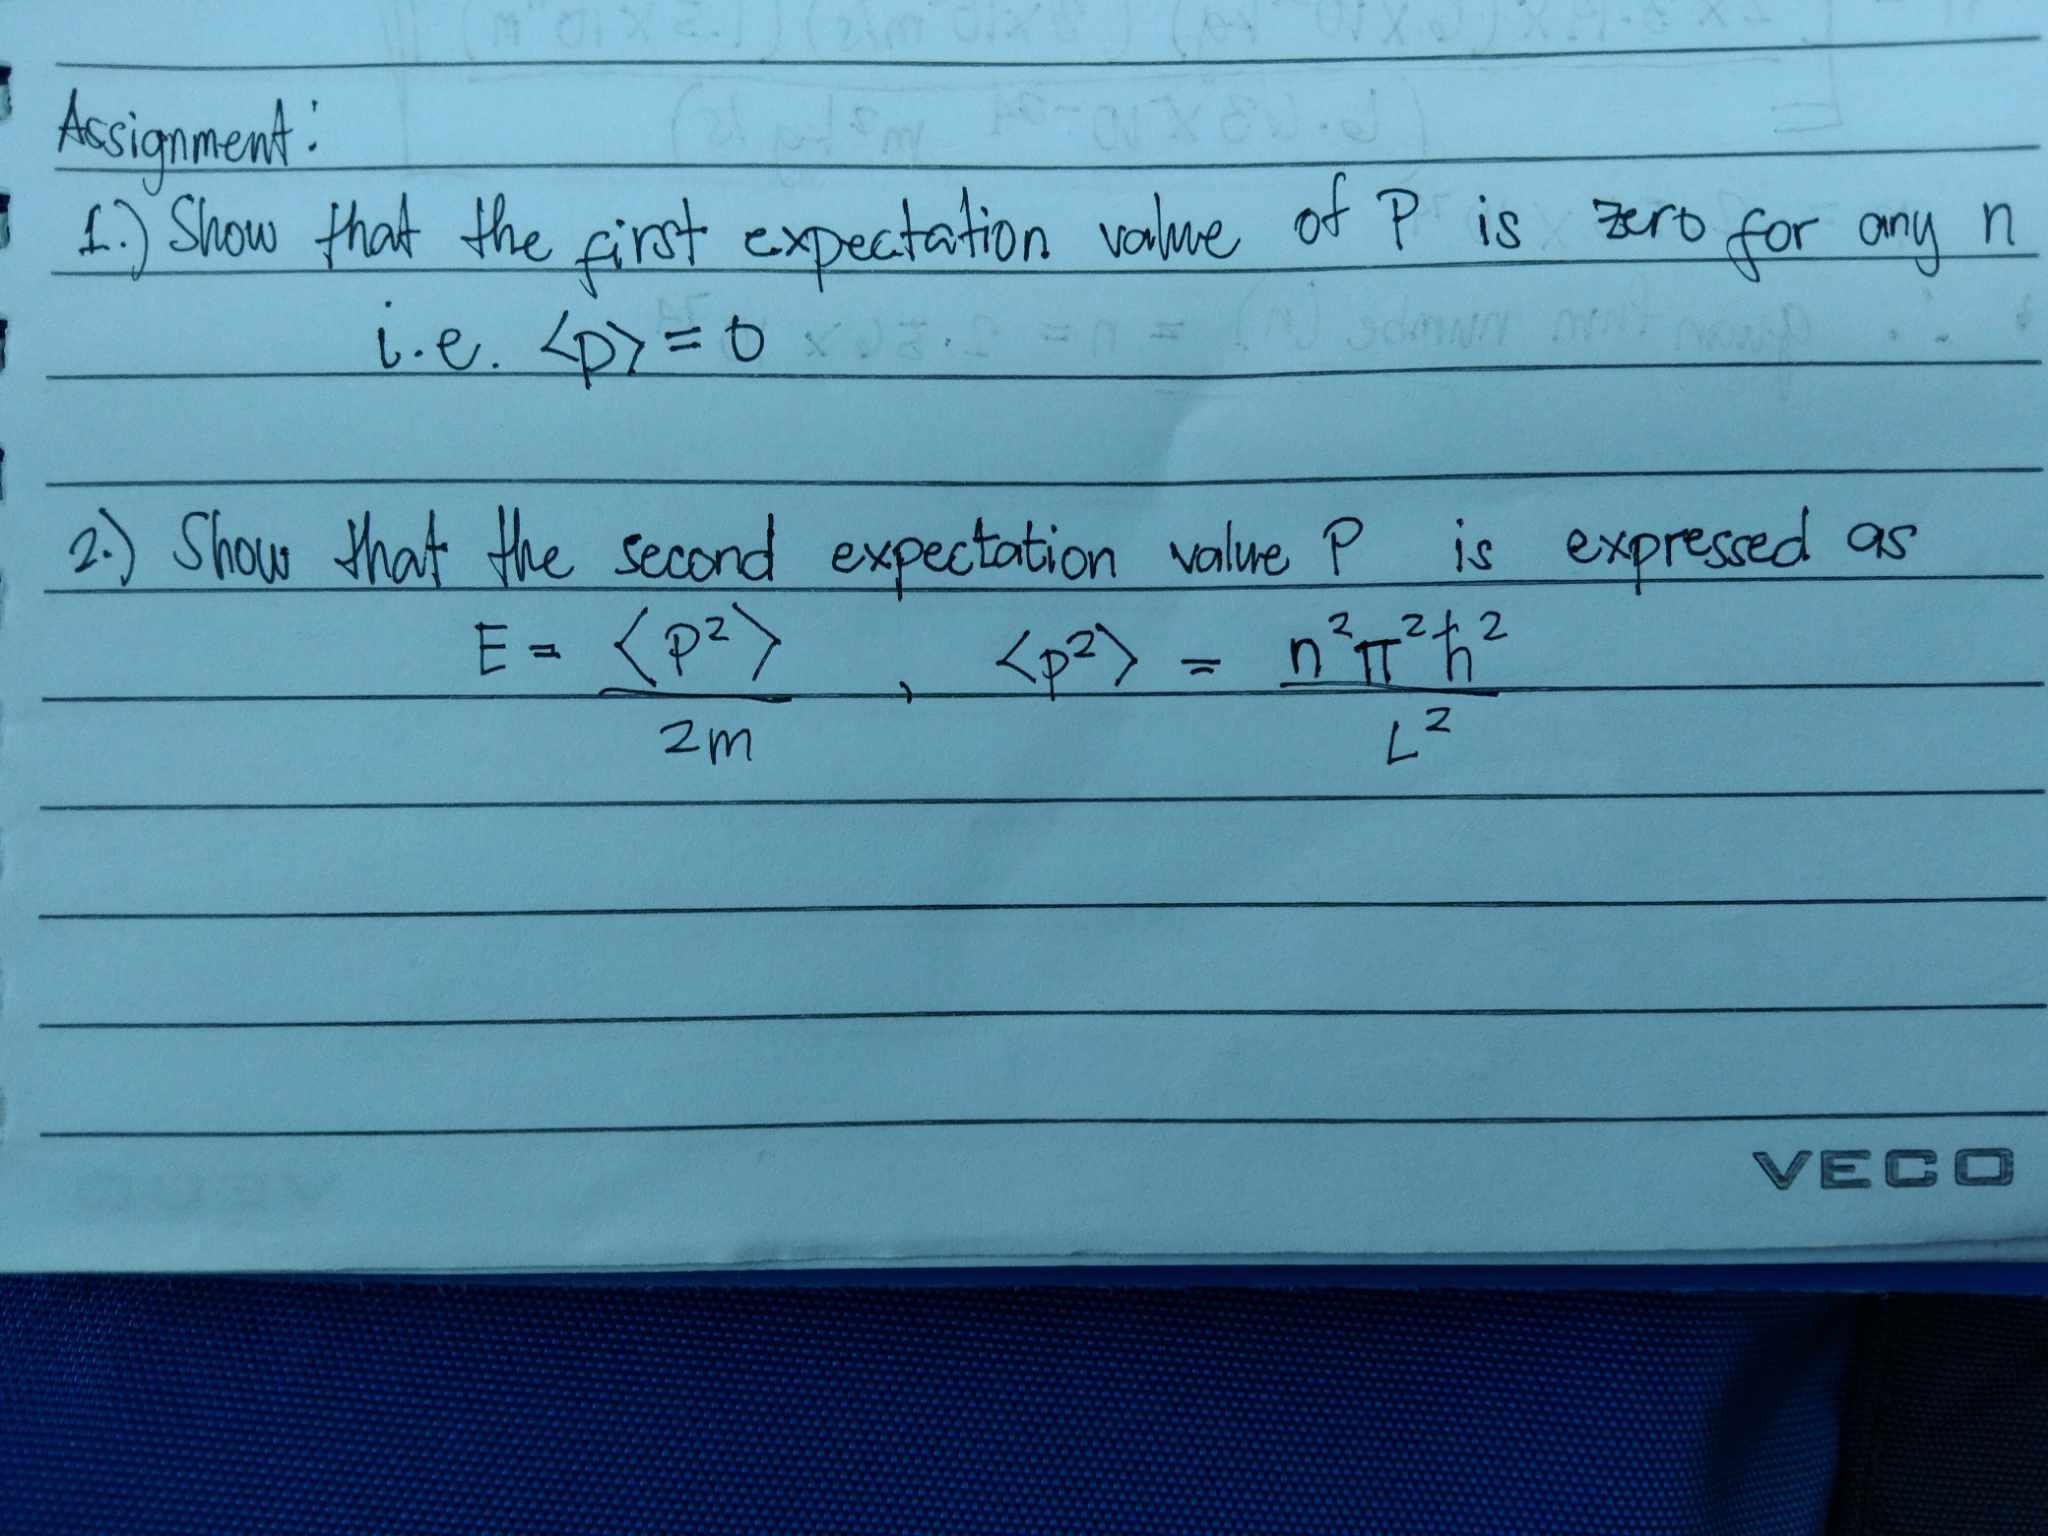 Assignment:
1.) Show that the first expectation value of P is zero for any n
i.e. <p> = 0
2.) Show that the second expectation value P is expressed as
E = <P²> / 2m , <p²> = n²π²ħ² / L²
VECO